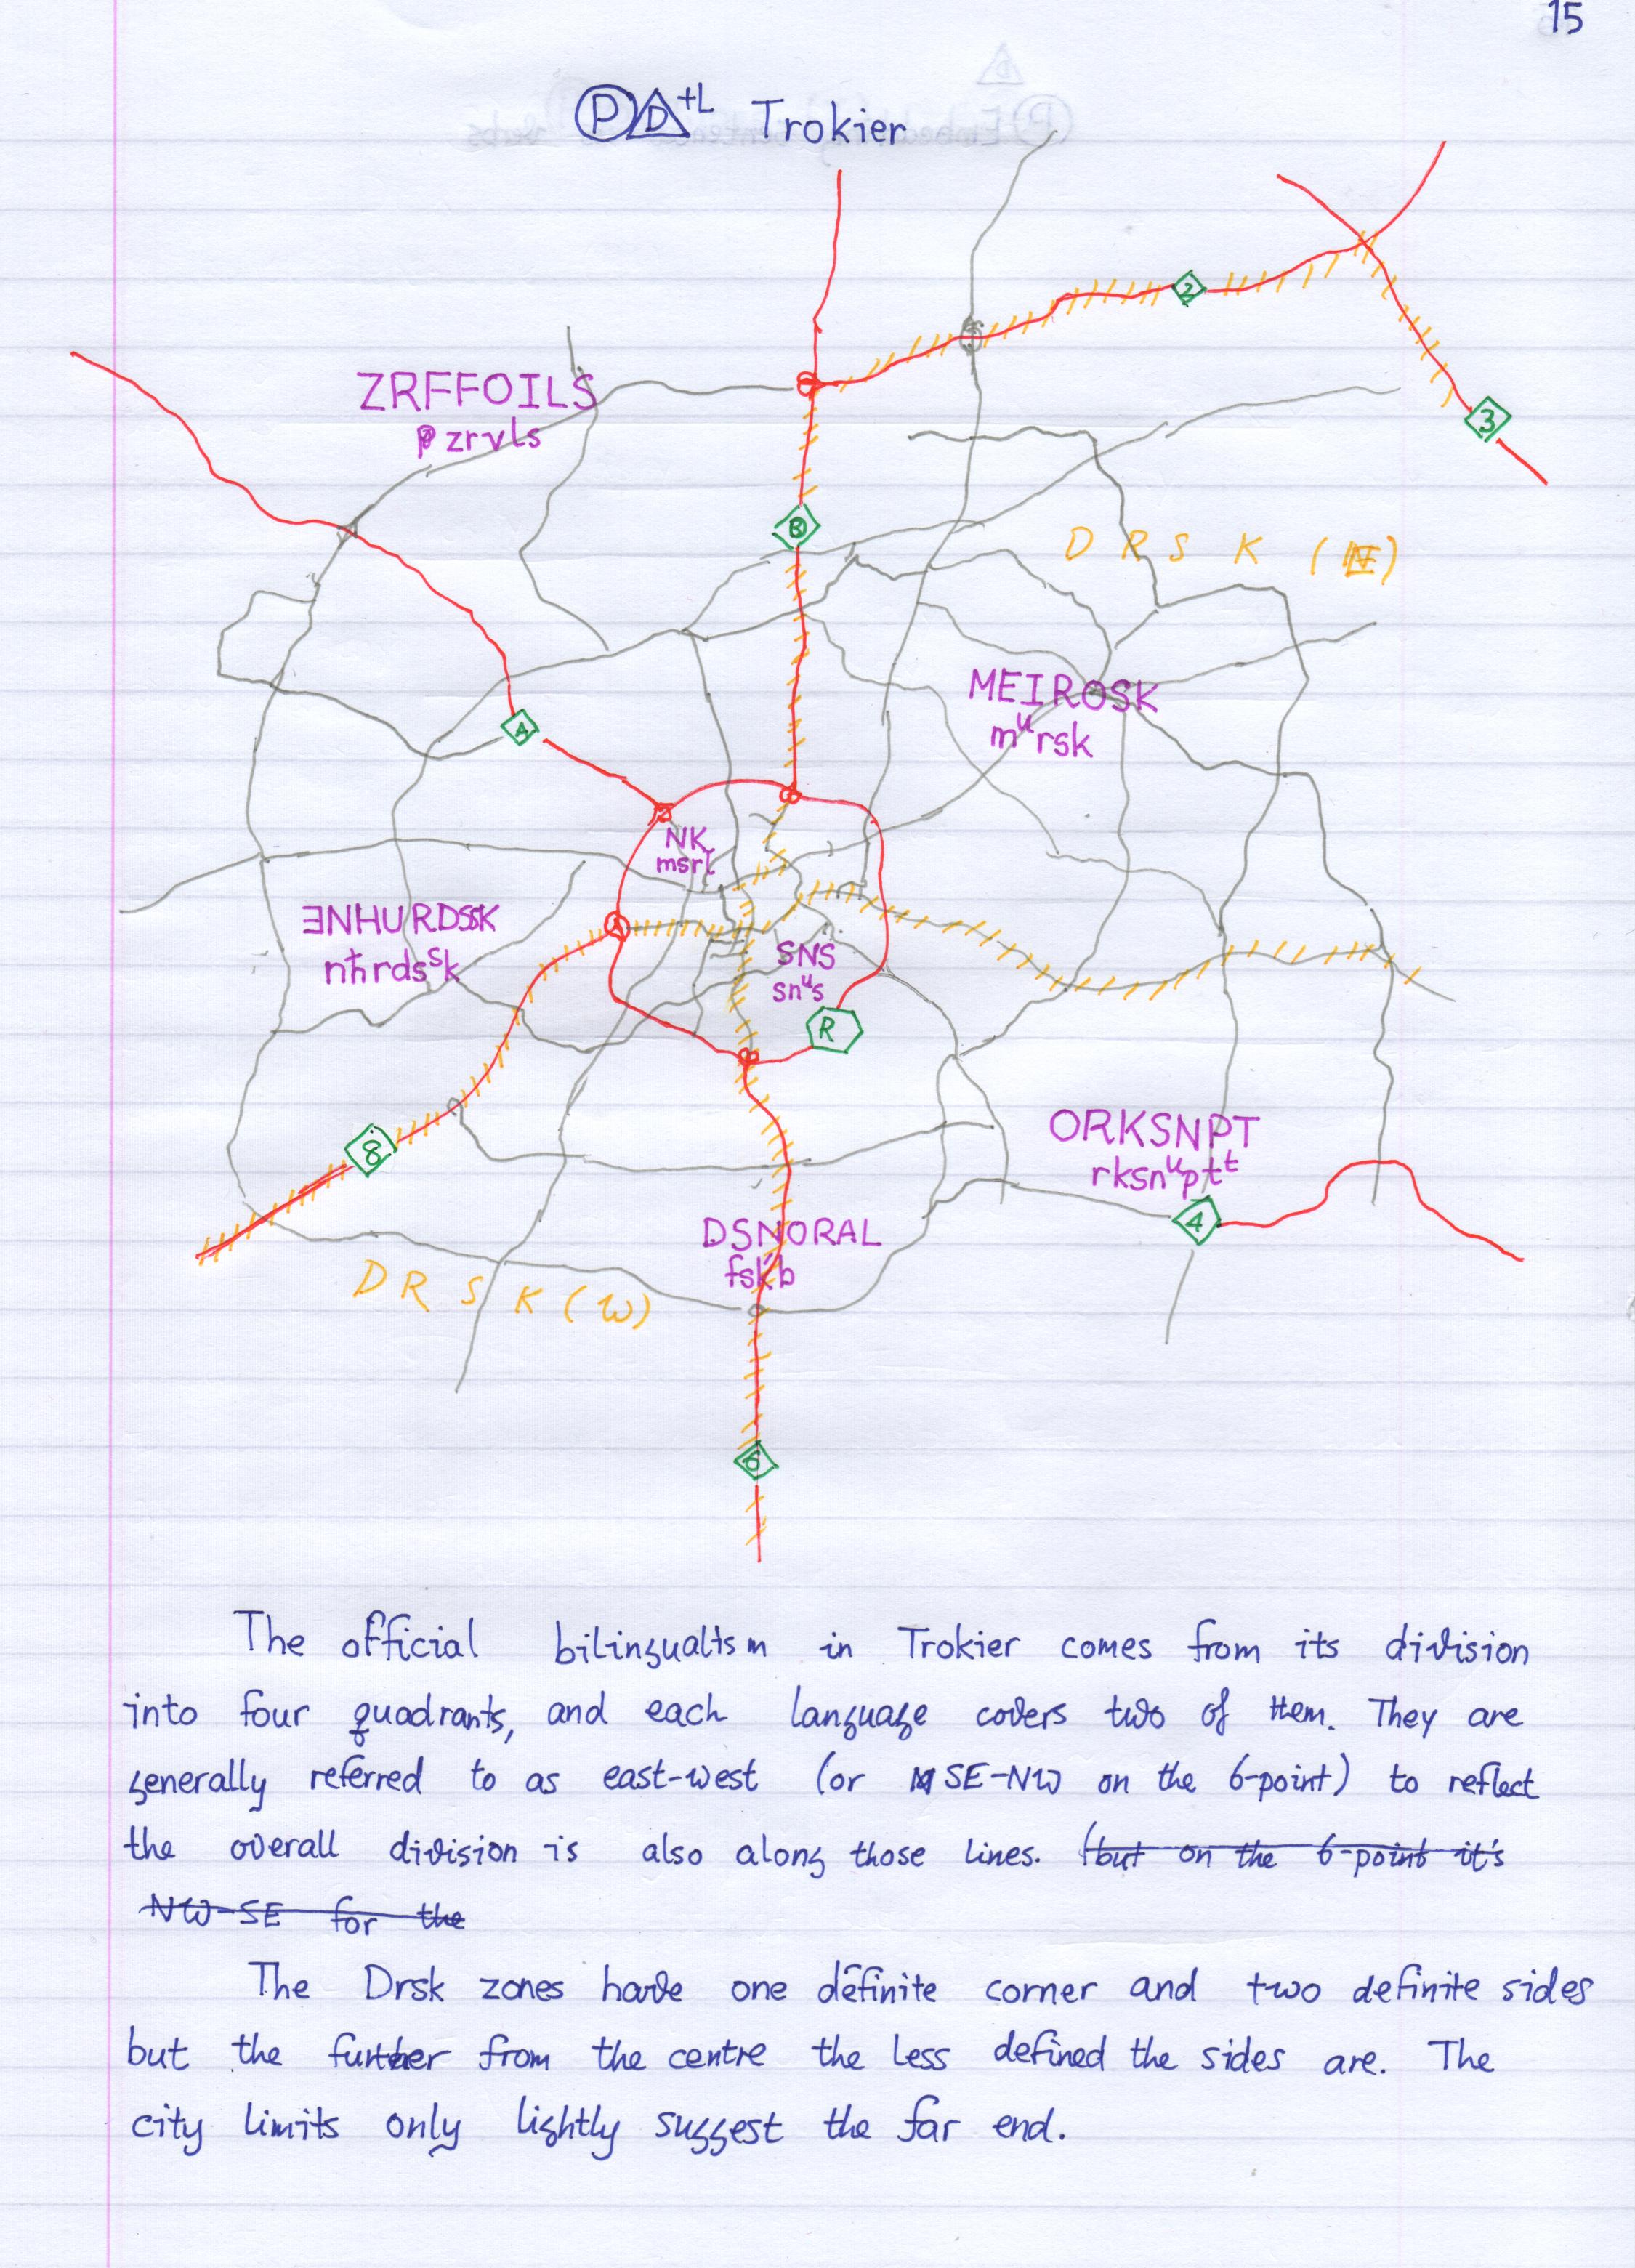 15
PD+L Trokier
2
3
ZRFFOILS
zrvls
B
DRSK (E)
MEIROSK
mᵘrsk
A
NK
msrl
ƎNHURDSSK
nħrdsˢk
SNS
snᵘs
R
8
ORKSNPT
rksnᵘptᵗ
4
DSNORAL
fsk'b
DRSK (W)
6
The official bilingualism in Trokier comes from its division
into four quadrants, and each language covers two of them. They are
generally referred to as east-west (or SE-NW on the 6-point) to reflect
the overall division is also along those lines. (but on the 6-point it's
NW-SE for the
The Drsk zones have one definite corner and two definite sides
but the further from the centre the less defined the sides are. The
city limits only lightly suggest the far end.